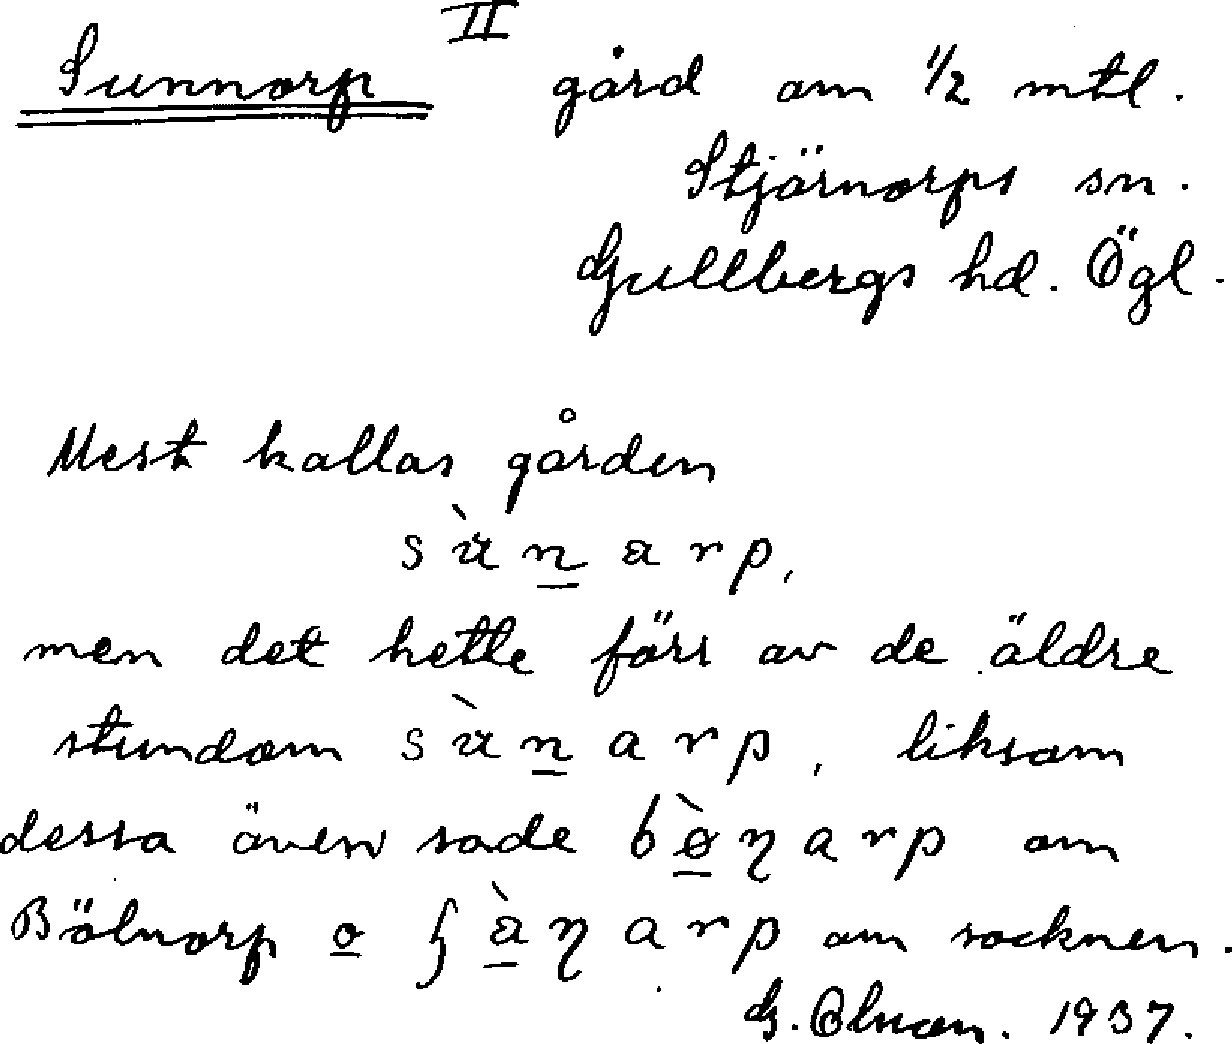 II
Sunnorp gård om 1/2 mtl.
Stjärnorps sn.
Gullbergs hd. Ögl.
Mest kallas gården
sùn̲arp,
men det hette förr av de äldre
stundom sùn̲arp, liksom
dessa även sade bø̲̀ɳarp om
Bölnorp o̲ ʃà̲ɳarp om socknen.
G. Olsson. 1937.